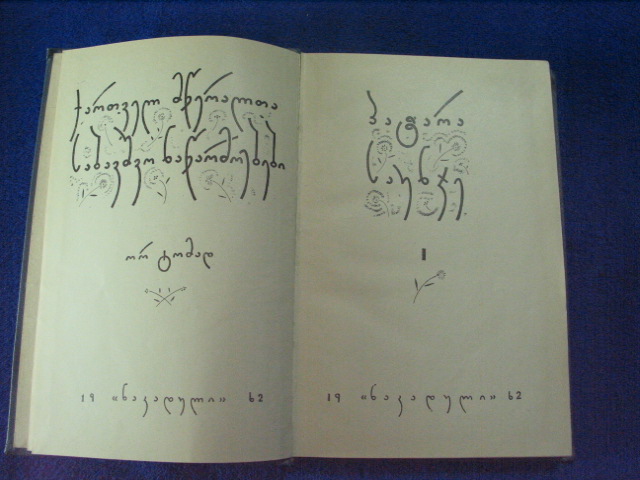 ქართველ მწერალთა
საბავშვო ნაწარმოებები
ორ ტომად
19 «ნაკადული» 62
პატარა
საუნჯე
I
19 «ნაკადული» 62